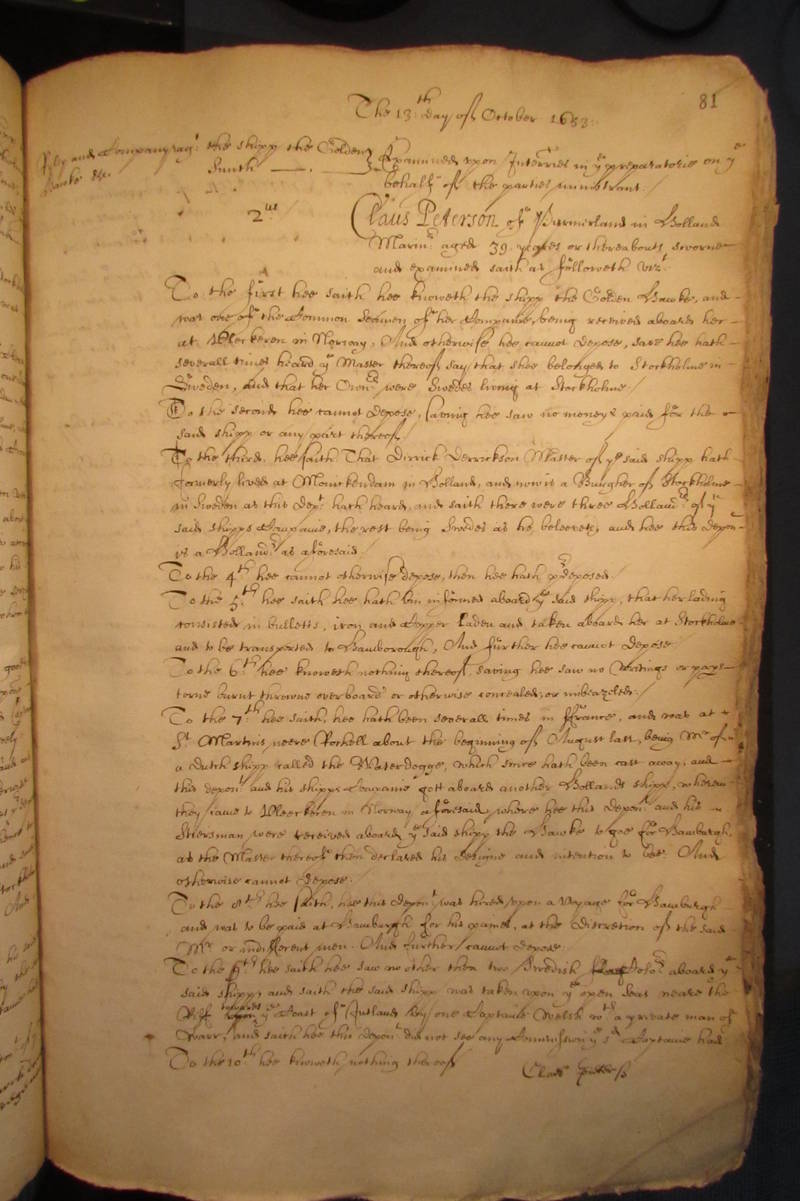 81
The 13th Day of October 1653:
Rely and Company agt the shipp the Golden
Hawke &c.
Smith
Examined upon Interries in ye preparatorie on ye
behalfe of the parties ministrant./
2us
Claus Peterson of Purmerland in Holland
Marinr aged 39 yeares or thereabouts sworne
and examined saith as followeth vizt
To the first hee saith hee knoweth the shipp the Golden Hawke, and
was one of the Common Seamen of her Companie, being received aboard her
at Fleckeren in Norway, And otherwise hee cannot depose, save hee hath
severall times heard ye Master thereof say, that shee belonged to Stockholme in
Sweden, and that her Ownrs were Swedes living at Stockholme /
To the second hee cannot depose, saving hee saw no moneys paid for the
said shipp or any part thereof
To the third, hee saith That Dirrick Derrickson Master of ye said shipp hath
formerly lived at Monickendam in Holland, and now is a Burgher of Stockholme
in Sweden as this Dept hath heard, and saith there were three Hollandrs of ye
said shipps Companie, the rest being Swedes as he beleeveth, and hee this Depont
is a Hollandr as aforesaid./
To the 4th hee cannot otherwise depose, then hee hath predeposed./
To the 5th hee saith hee hath bin informed aboard ye said shipp, that her lading
consisted in bulletts, iron and Copper Laden and taken aboard her at Stockholme
and to be transported to Hamborough, And further hee cannot depose
To the 6th hee knoweth nothing thereof, saving hee saw no Writings or papers
torne burnt throwne overboard or otherwise concealed, or imbeazeled./
To the 7th hee saith, hee hath been severall times in ffrance, and was at
St Martins neere Rochell about the beginning of August last, being Mr of
a Dutch shipp called the Waterdogge, which since hath been cast away, and
this depont and his shipps Companie gott aboard another Hollands shipp, wherein
they came to Fleckeren in Norway aforesaid, where hee this Depont and his
Stiersman were received aboard ye said shipp the Hawke to goe for Hamburgh,
as the Master thereof then declared his designe and intention to bee. And
otherwise cannot depose./
To the 8th hee saith, hee this Depont was hired upon a Voyage for Hamburgh
and was to be paid at Hamburgh for his paines, at the Discretion of the said
Mr or indifferent men. And further cannot depose
To the 9th hee saith hee saw no other then two Swedish aboard ye
said shipp, and saith the said shipp was taken upon ye open Seas neare the
towards ye Coast of Jutland by one Captaine Welsh a private man of
Warr, and saith hee this Depont did not see any Commission ye sd Captaine had
To the 10th hee knoweth nothing thereof